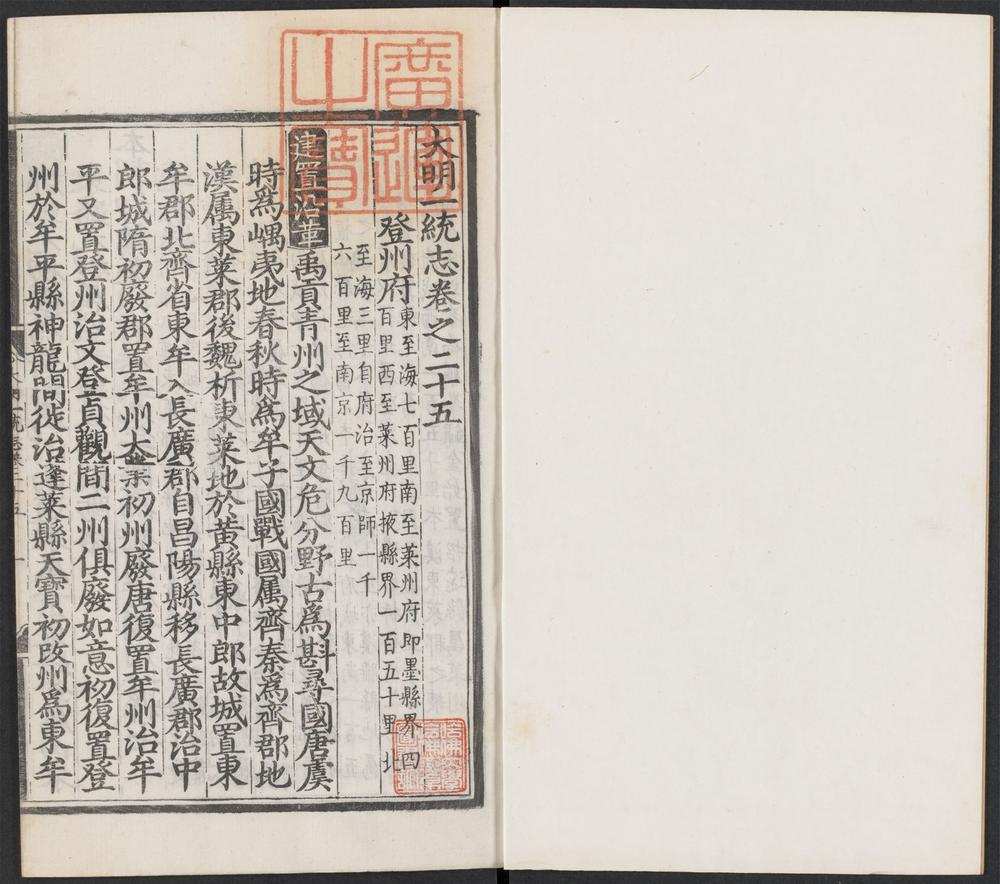 大明一統志卷之二十五
登州府
東至海七百里南至萊州府即墨縣界四
百里西至萊州府掖縣界一百五十里北
至海三里自府治至京師一千
六百里至南京一千九百里
建置沿革禹貢青州之域天文危分野古為斟尋國唐虞
時為嵎夷地春秋時為牟子國戰國属齊秦為齊郡地
漢属東萊郡後魏析東萊地於黃縣東中郎故城置東
牟郡北齊省東牟入長廣郡自昌陽縣移長廣郡治中
郎城隋初廢郡置牟州大業初州廢唐復置牟州治牟
平又置登州治文登貞觀間二州俱廢如意初復置登
州於牟平縣神龍間徙治蓬萊縣天寶初改州為東牟
廣運之寶